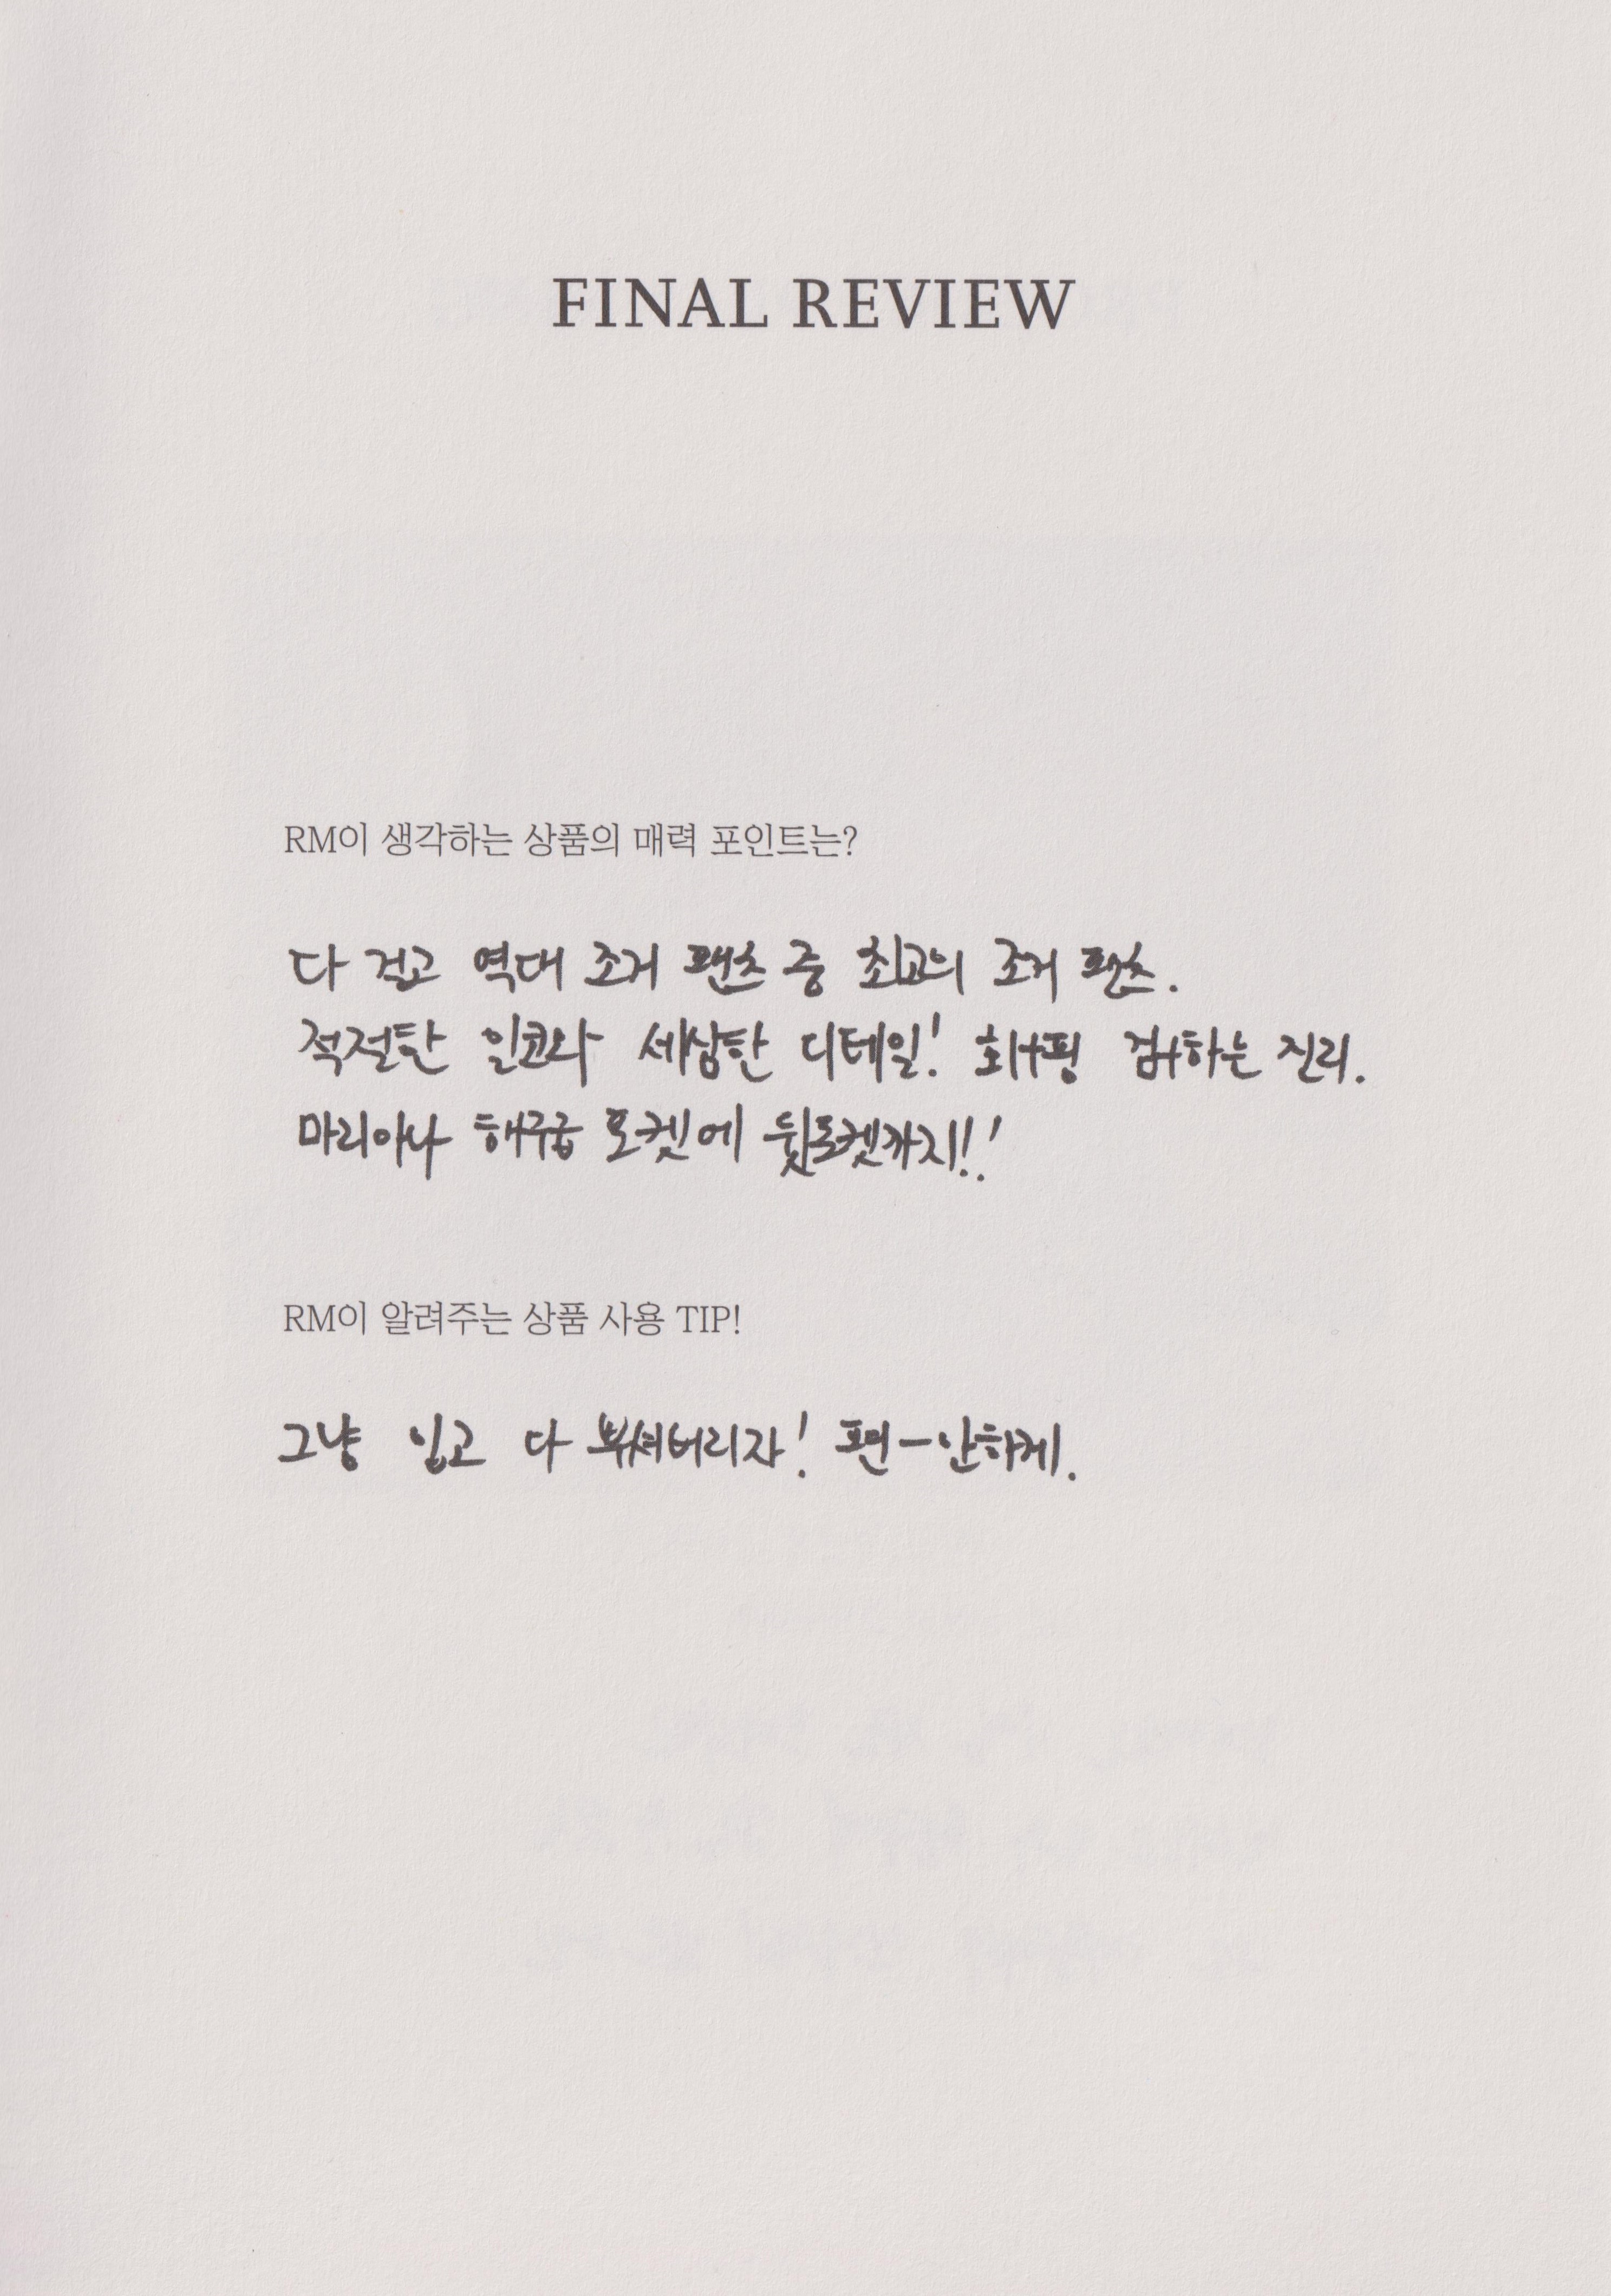 FINAL REVIEW
RM이 생각하는 상품의 매력 포인트는?
다 걸고 역대 조거 팬츠 중 최고의 조거 팬츠.
적절한 입코와 세심한 디테일! 회+핑 검+하는 진리.
마리아나 해구급 포켓에 뒷포켓까지!!
RM이 알려주는 상품 사용 TIP!
그냥 입고 다 뿌셔버리자! 편-안하게.